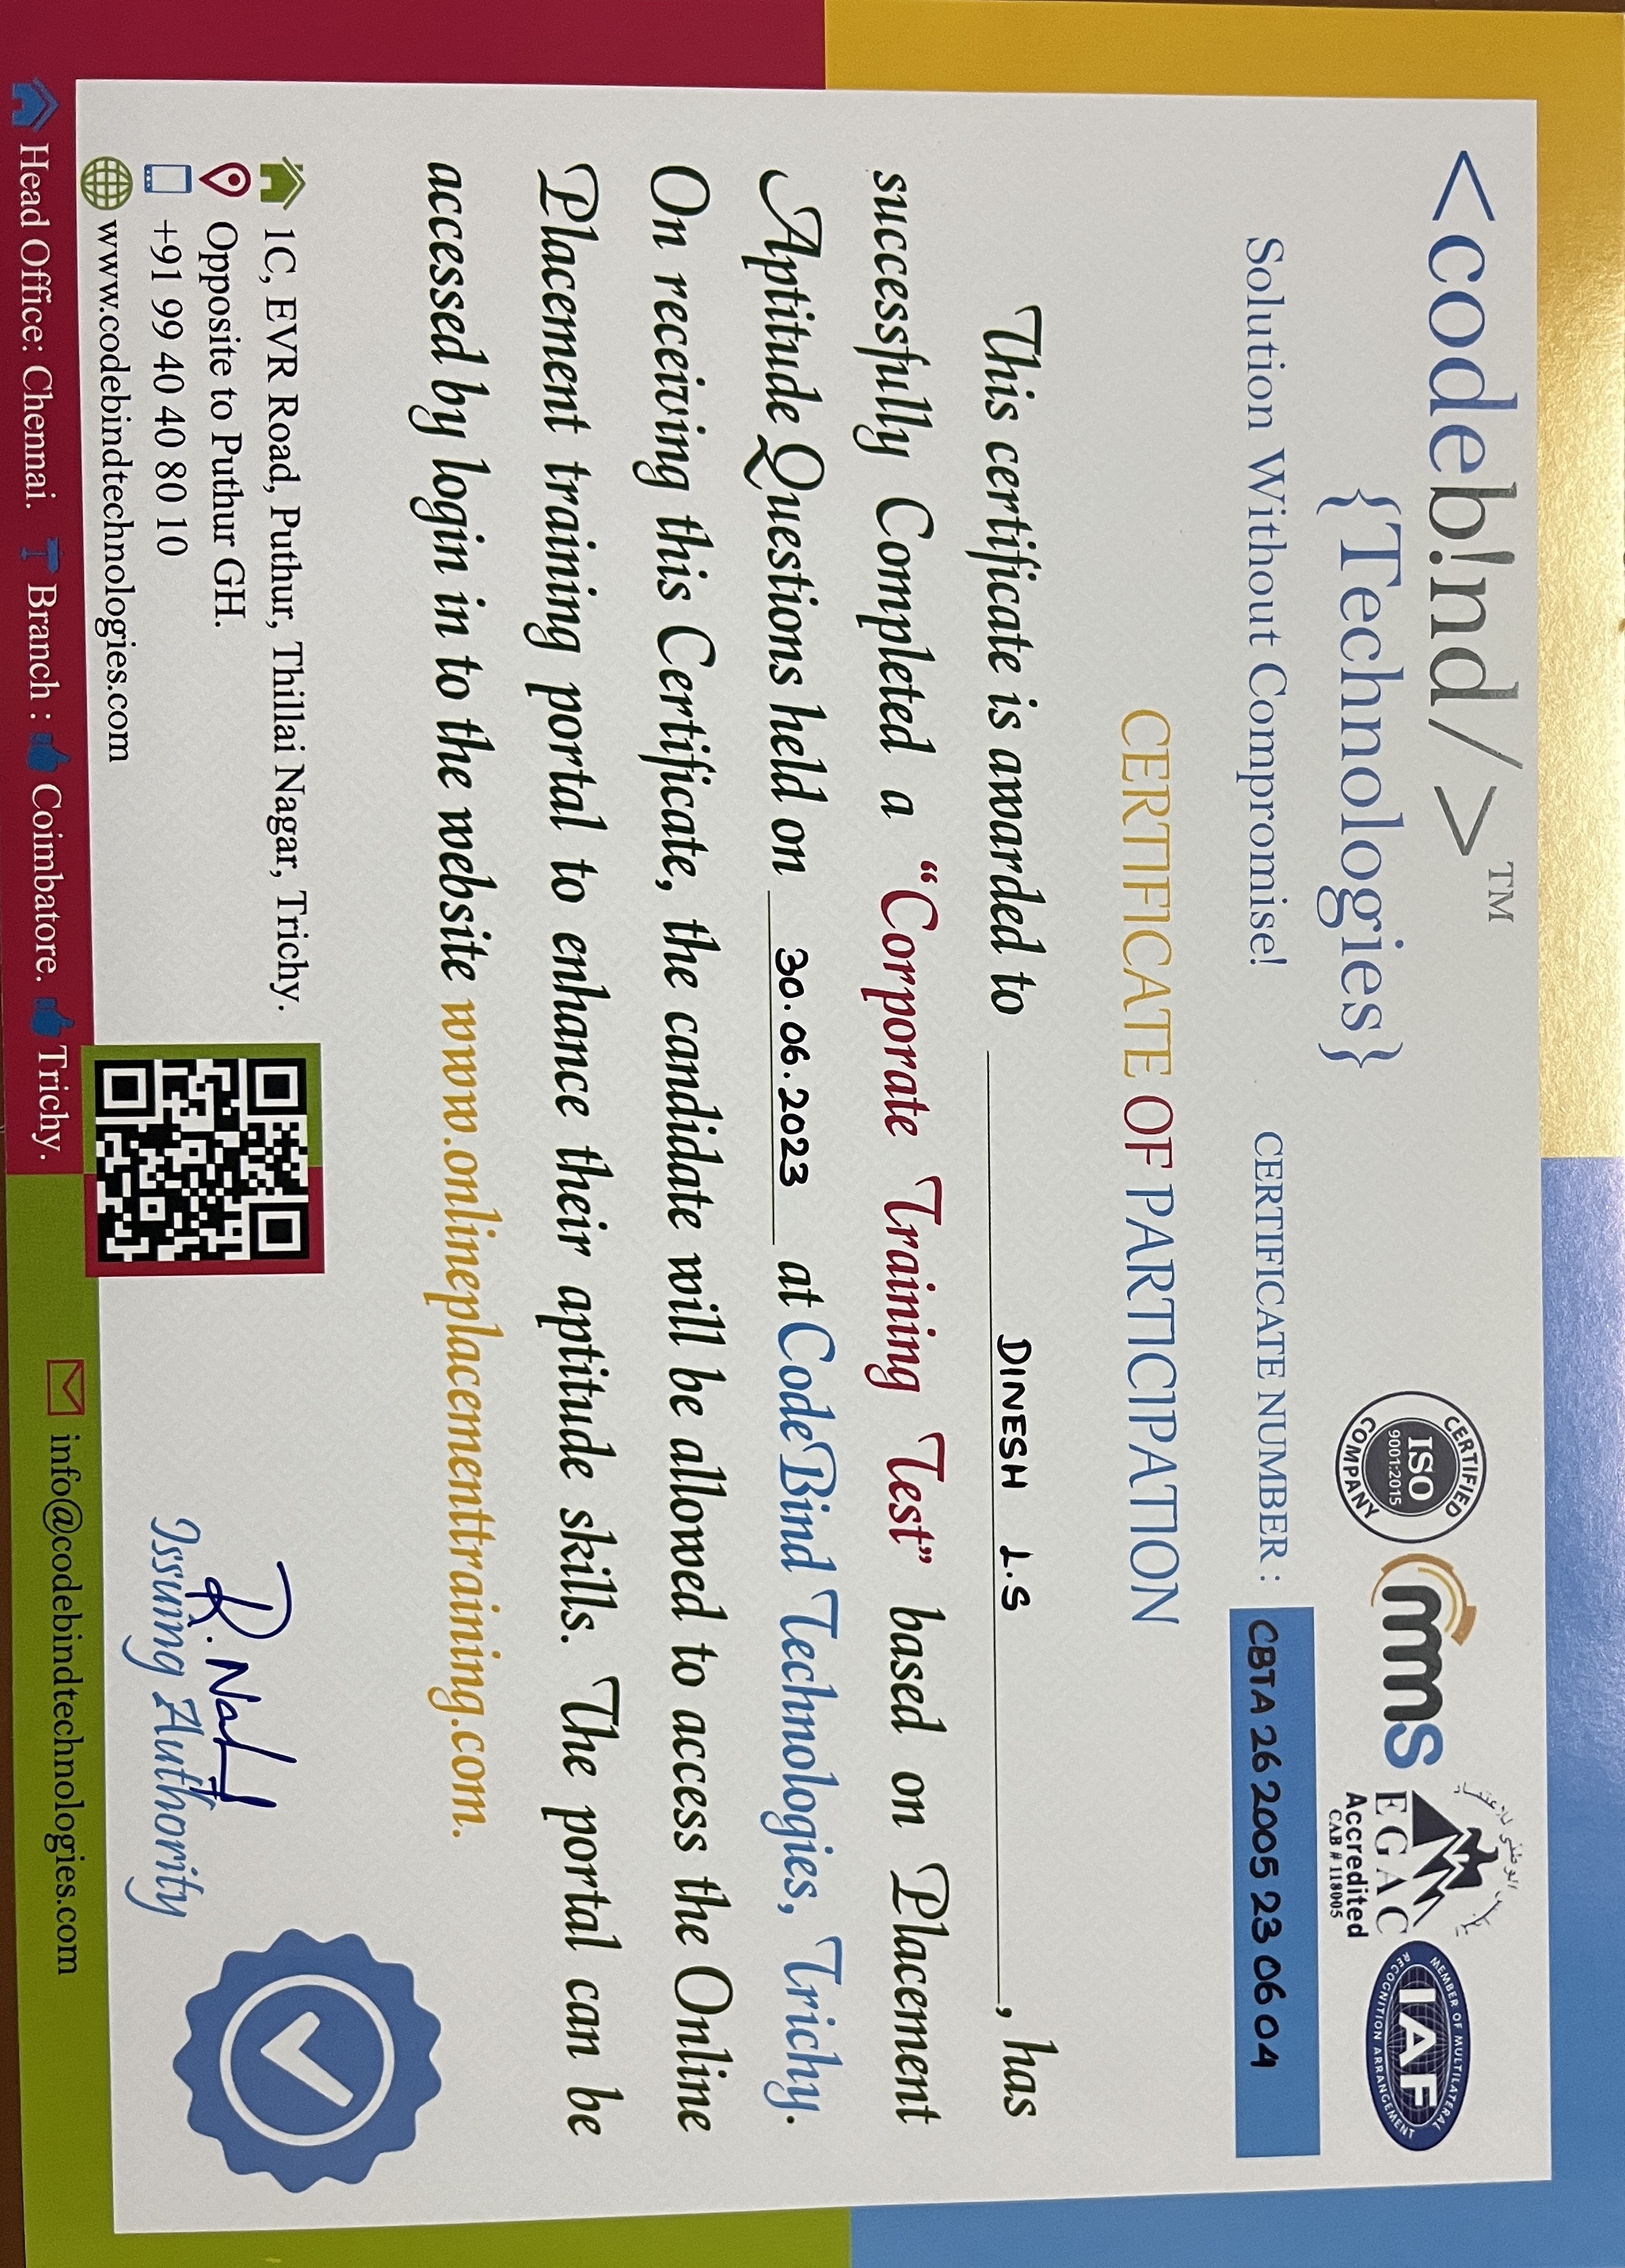 <codeb!nd/>™
{Technologies}
Solution Without Compromise!
CERTIFIED
ISO
9001:2015
COMPANY
mms
المجلس الوطني للاعتماد
EGAC
Accredited
CAB # 118005
MEMBER OF MULTILATERAL
IAF
RECOGNITION ARRANGEMENT
CERTIFICATE NUMBER : CBTA 26 2005 23 06 04
CERTIFICATE OF PARTICIPATION
This certificate is awarded to DINESH L.S, has
successfully Completed a “Corporate Training Test” based on Placement
Aptitude Questions held on 30.06.2023 at CodeBind Technologies, Trichy.
On receiving this Certificate, the candidate will be allowed to access the Online
Placement training portal to enhance their aptitude skills. The portal can be
accessed by login in to the website www.onlineplacementtraining.com.
1C, EVR Road, Puthur, Thillai Nagar, Trichy.
Opposite to Puthur GH.
+91 99 40 40 80 10
www.codebindtechnologies.com
Issuing Authority
Head Office: Chennai. Branch : Coimbatore. Trichy.
info@codebindtechnologies.com